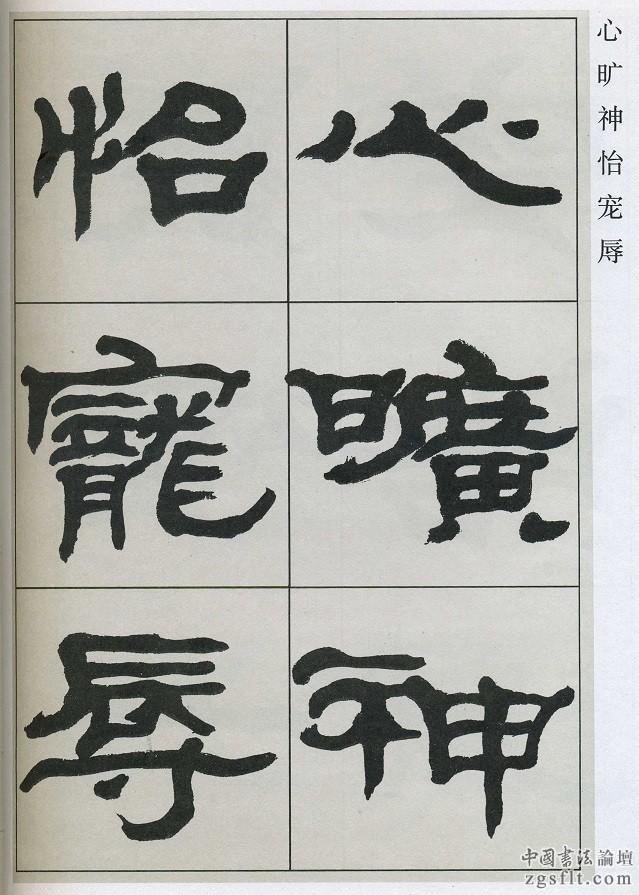 心曠神
怡寵辱
心旷神怡宠辱
中國書法論壇
zgsflt.com